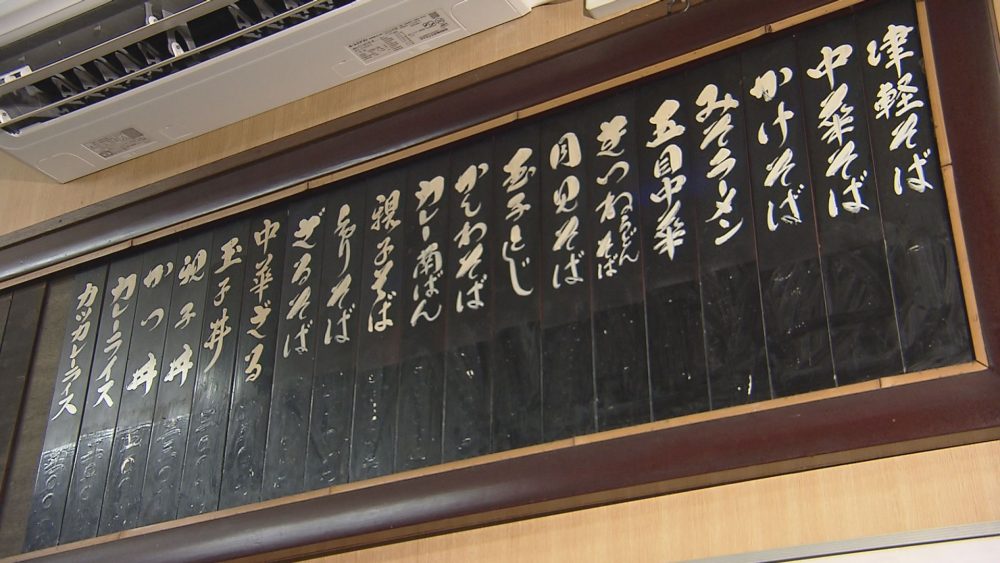 津軽そば
中華そば
かけそば
みそラーメン
五目中華
きつねうどんそば
月見そば
玉子とじ
かしわそば
カレー南ばん
親子そば
ざるそば
中華ざる
玉子丼
親子丼
かつ丼
カレーライス
カツカレーライス